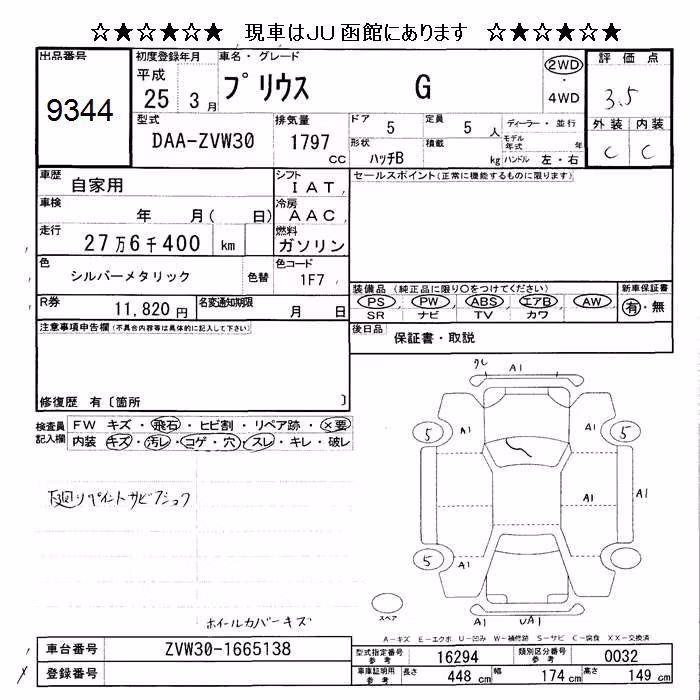 ☆★☆★☆★ 現車はJU函館にあります ☆★☆★☆★
出品番号 9344
初度登録年月 平成 25 3月
車名・グレード プリウス G
2WD・4WD
評価点 3.5
外装 内装
C C
型式 DAA-ZVW30
排気量 1797 CC
ドア 5 定員 5 人
形状 ハッチB 積載 kg
ディーラー・並行
モデル年式 年
ハンドル 左・右
車歴 自家用
シフト IAT
車検 年 月( 日)
冷房 AAC
走行 27万6千400 km
燃料 ガソリン
色 シルバーメタリック 色替
色コード 1F7
R券 11,820円
名変通知期限 月 日
セールスポイント(正常に機能するものに限ります)
装備品 (純正品に限り○をつけてください)
PS PW ABS エアB AW
SR ナビ TV カワ
新車保証書 有・無
後日品 保証書・取説
注意事項申告欄(不具合内容等は具体的に記入して下さい)
修復歴 有〔箇所 〕
検査員記入欄
FW キズ・飛石・ヒビ割・リペア跡・×要
内装 キズ・汚レ・コゲ・穴・スレ・キレ・破レ
下回りペイントサビフショク
ホイールカバーキズ
A1
A1
A1
5
5
A1
A1
A1
5
A1
A1
A1
UA1
スペア
A-キズ E-エクボ U-凹み W-補修跡 S-サビ C-腐食 XX-交換済
車台番号 ZVW30-1665138
登録番号
型式指定番号 参考 16294
類別区分番号 参考 0032
車庫証明用 参考 長さ 448 cm 幅 174 cm 高さ 149 cm